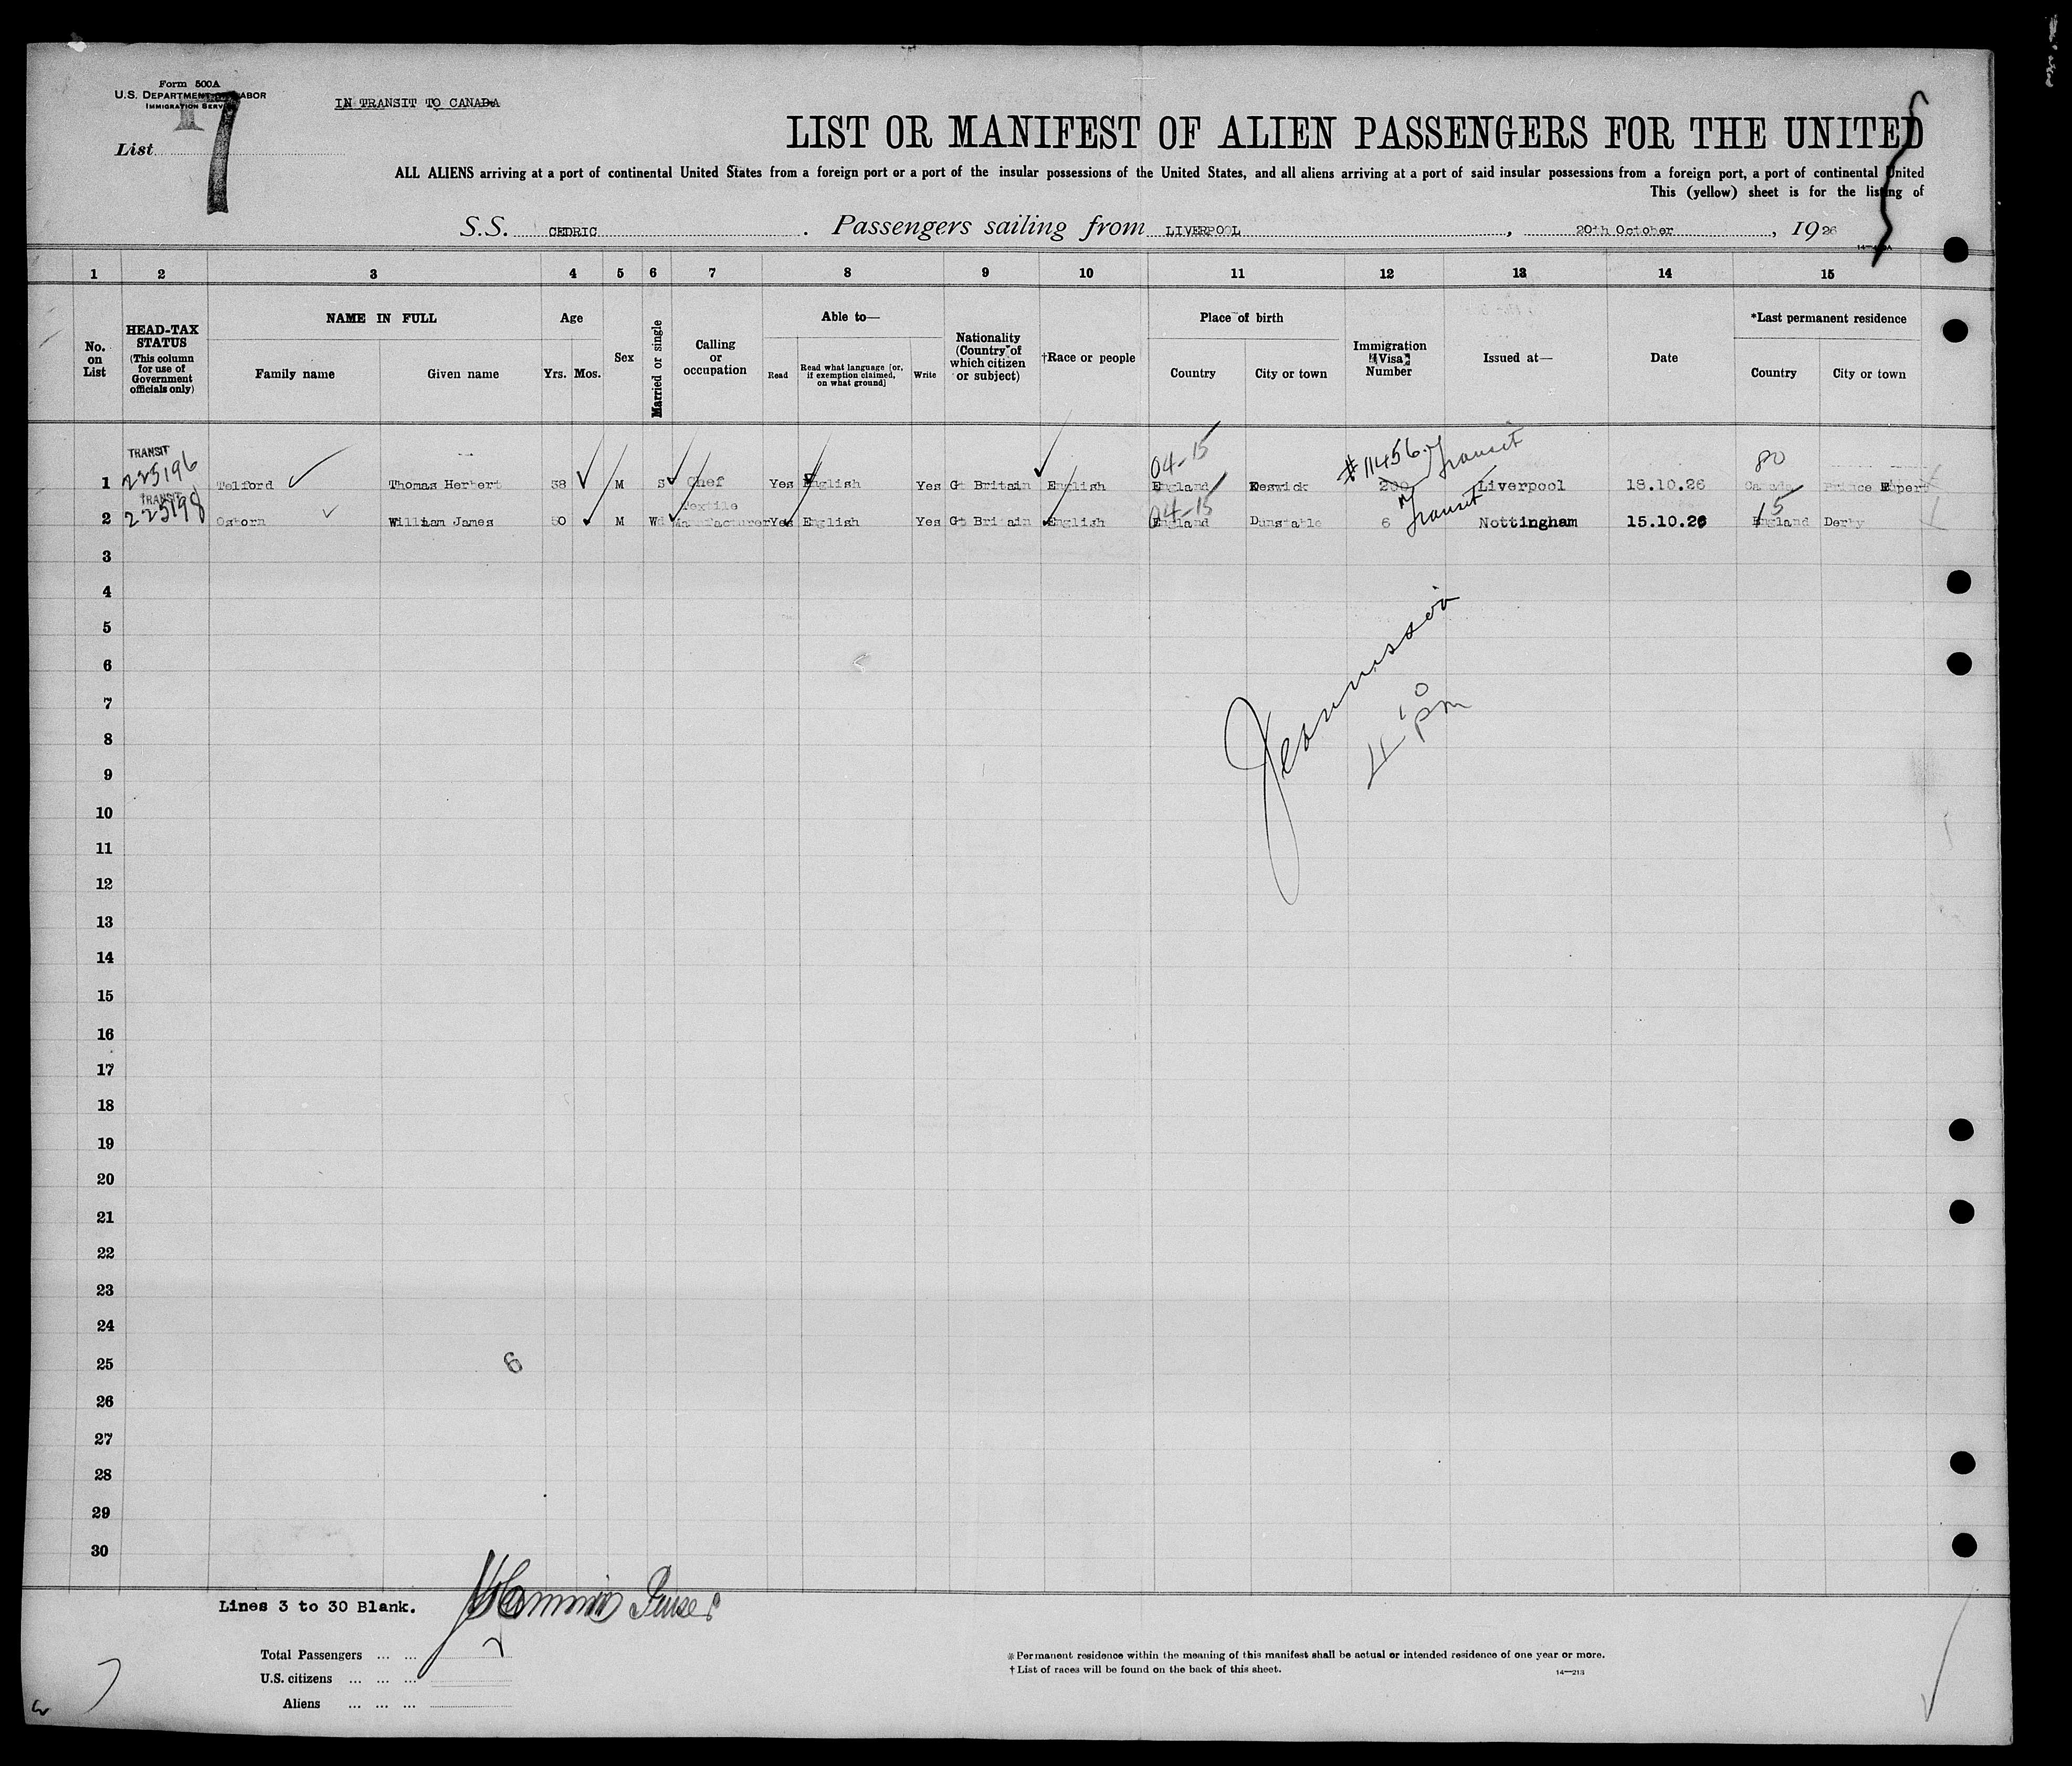 Form 500A
U.S. DEPARTMENT OF LABOR
IMMIGRATION SERVICE
IN TRANSIT TO CANADA
List 7
LIST OR MANIFEST OF ALIEN PASSENGERS FOR THE UNITED
ALL ALIENS arriving at a port of continental United States from a foreign port or a port of the insular possessions of the United States, and all aliens arriving at a port of said insular possessions from a foreign port, a port of continental United
This (yellow) sheet is for the listing of
S.S. CEDRIC. Passengers sailing from LIVERPOOL, 20th October, 1926
1 2 3 4 5 6 7 8 9 10 11 12 13 14 15
No. on List
HEAD-TAX STATUS
(This column for use of Government officials only)
NAME IN FULL
Family name
Given name
Age
Yrs. Mos.
Sex
Married or single
Calling or occupation
Able to—
Read
Read what language [or, if exemption claimed, on what ground]
Write
Nationality (Country of which citizen or subject)
†Race or people
Place of birth
Country
City or town
Immigration Visa Number
Issued at—
Date
*Last permanent residence
Country
City or town
TRANSIT
225196
04-15
#11456
Transit
80
1 Telford Thomas Herbert 38 M S Chef Yes English Yes Gt Britain English England Keswick 200 Liverpool 18.10.26 Canada Prince Rupert
TRANSIT
225198
04-15
Transit
15
2 Osborn William James 50 M Wd Textile Manufacturer Yes English Yes Gt Britain English England Dunstable 6 Nottingham 15.10.26 England Derby
3
4
5
6
7
8
9
10
11
12
13
14
15
16
17
18
19
20
21
22
23
24
25
26
27
28
29
30
pm
6
Lines 3 to 30 Blank.
Purser
Total Passengers ... ...
U.S. citizens ... ... ...
Aliens ... ... ...
*Permanent residence within the meaning of this manifest shall be actual or intended residence of one year or more.
†List of races will be found on the back of this sheet.
14—213